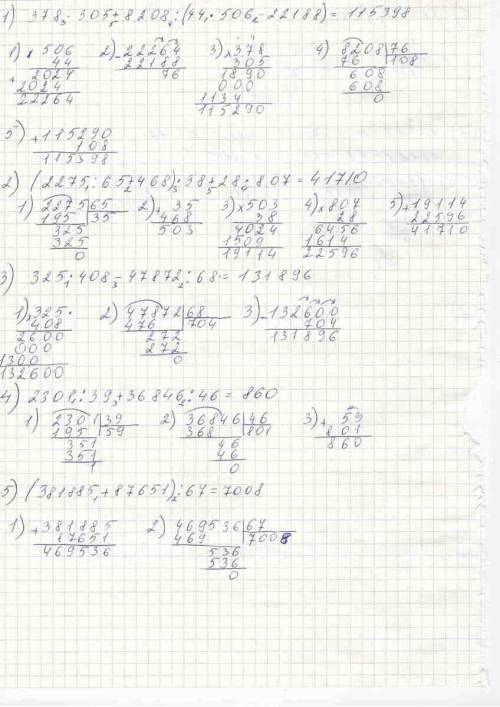 1) 378·305+8208:(44·506-22188)=115398
1) ×506 2) -22264 3) ×378 4) 8208|76
44 22188 305 76 |108
2024 76 1890 608
+2024 000 608
22264 1134 0
115290
5) +115290
108
115398
2) (2275:65+468)·38+28·807=41710
1) 2275|65 2) +35 3) ×503 4) ×807 5) +19114
195 |35 468 38 28 22596
325 503 4024 6456 41710
325 1509 1614
0 19114 22596
3) 325·408-47872:68=131896
1) ×325 2) 47872|68 3) -132600
408 476 |704 704
2600 272 131896
000 272
1300 0
132600
4) 2301:39+36846:46=860
1) 2301|39 2) 36846|46 3) +59
195 |59 368 |801 801
351 46 860
351 46
1 0
5) (381885+87651):67=7008
1) +381885 2) 469536|67
87651 469 |7008
469536 536
536
0